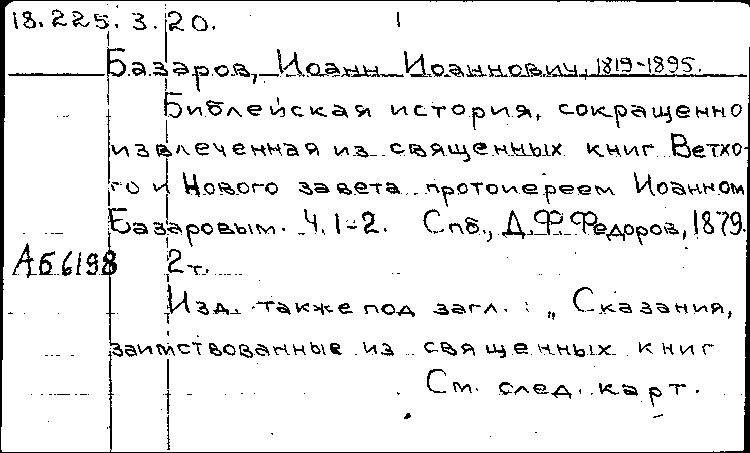 18.225.3.20. 1
Базаров, Иоанн Иоаннович, 1819-1895.
Библейская история, сокращенно
извлеченная из священных книг Ветхо-
го и Нового завета протоиереем Иоанном
Базаровым. Ч. 1-2. Спб., Д.Ф. Федоров, 1879.
Аб6198 2 т.
Изд. также под загл.: „Сказания,
заимствованные из священных книг
См. след. карт.